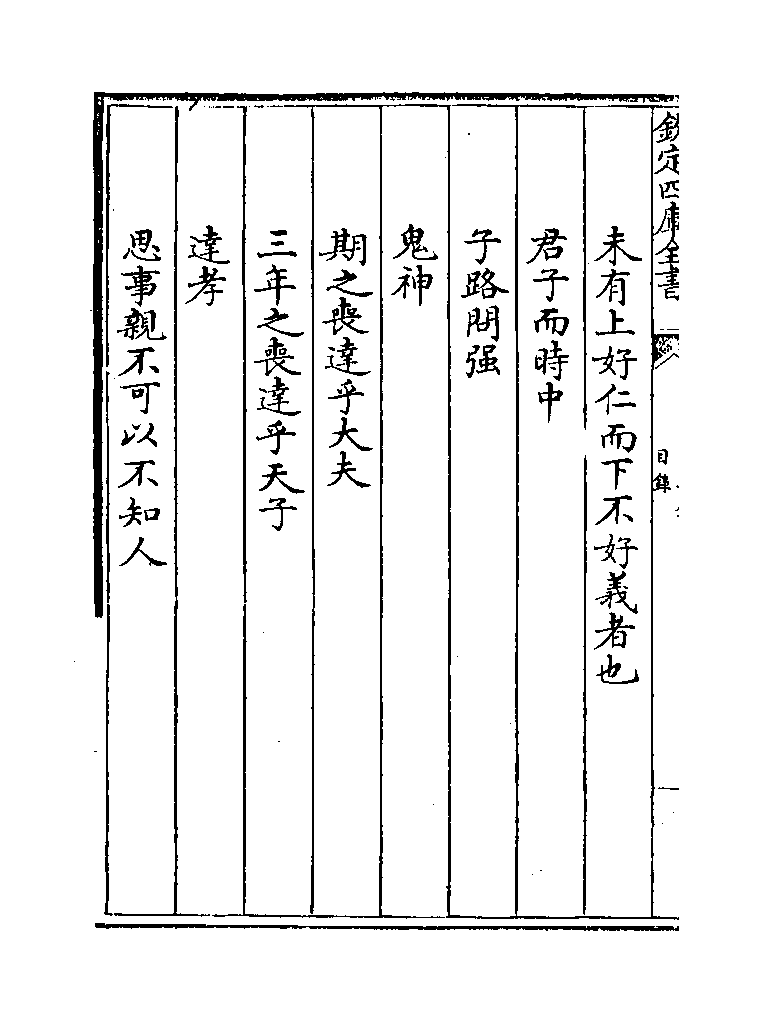 欽定四庫全書
目錄
未有上好仁而下不好義者也
君子而時中
子路問强
鬼神
期之喪達乎大夫
三年之喪達乎天子
達孝
思事親不可以不知人